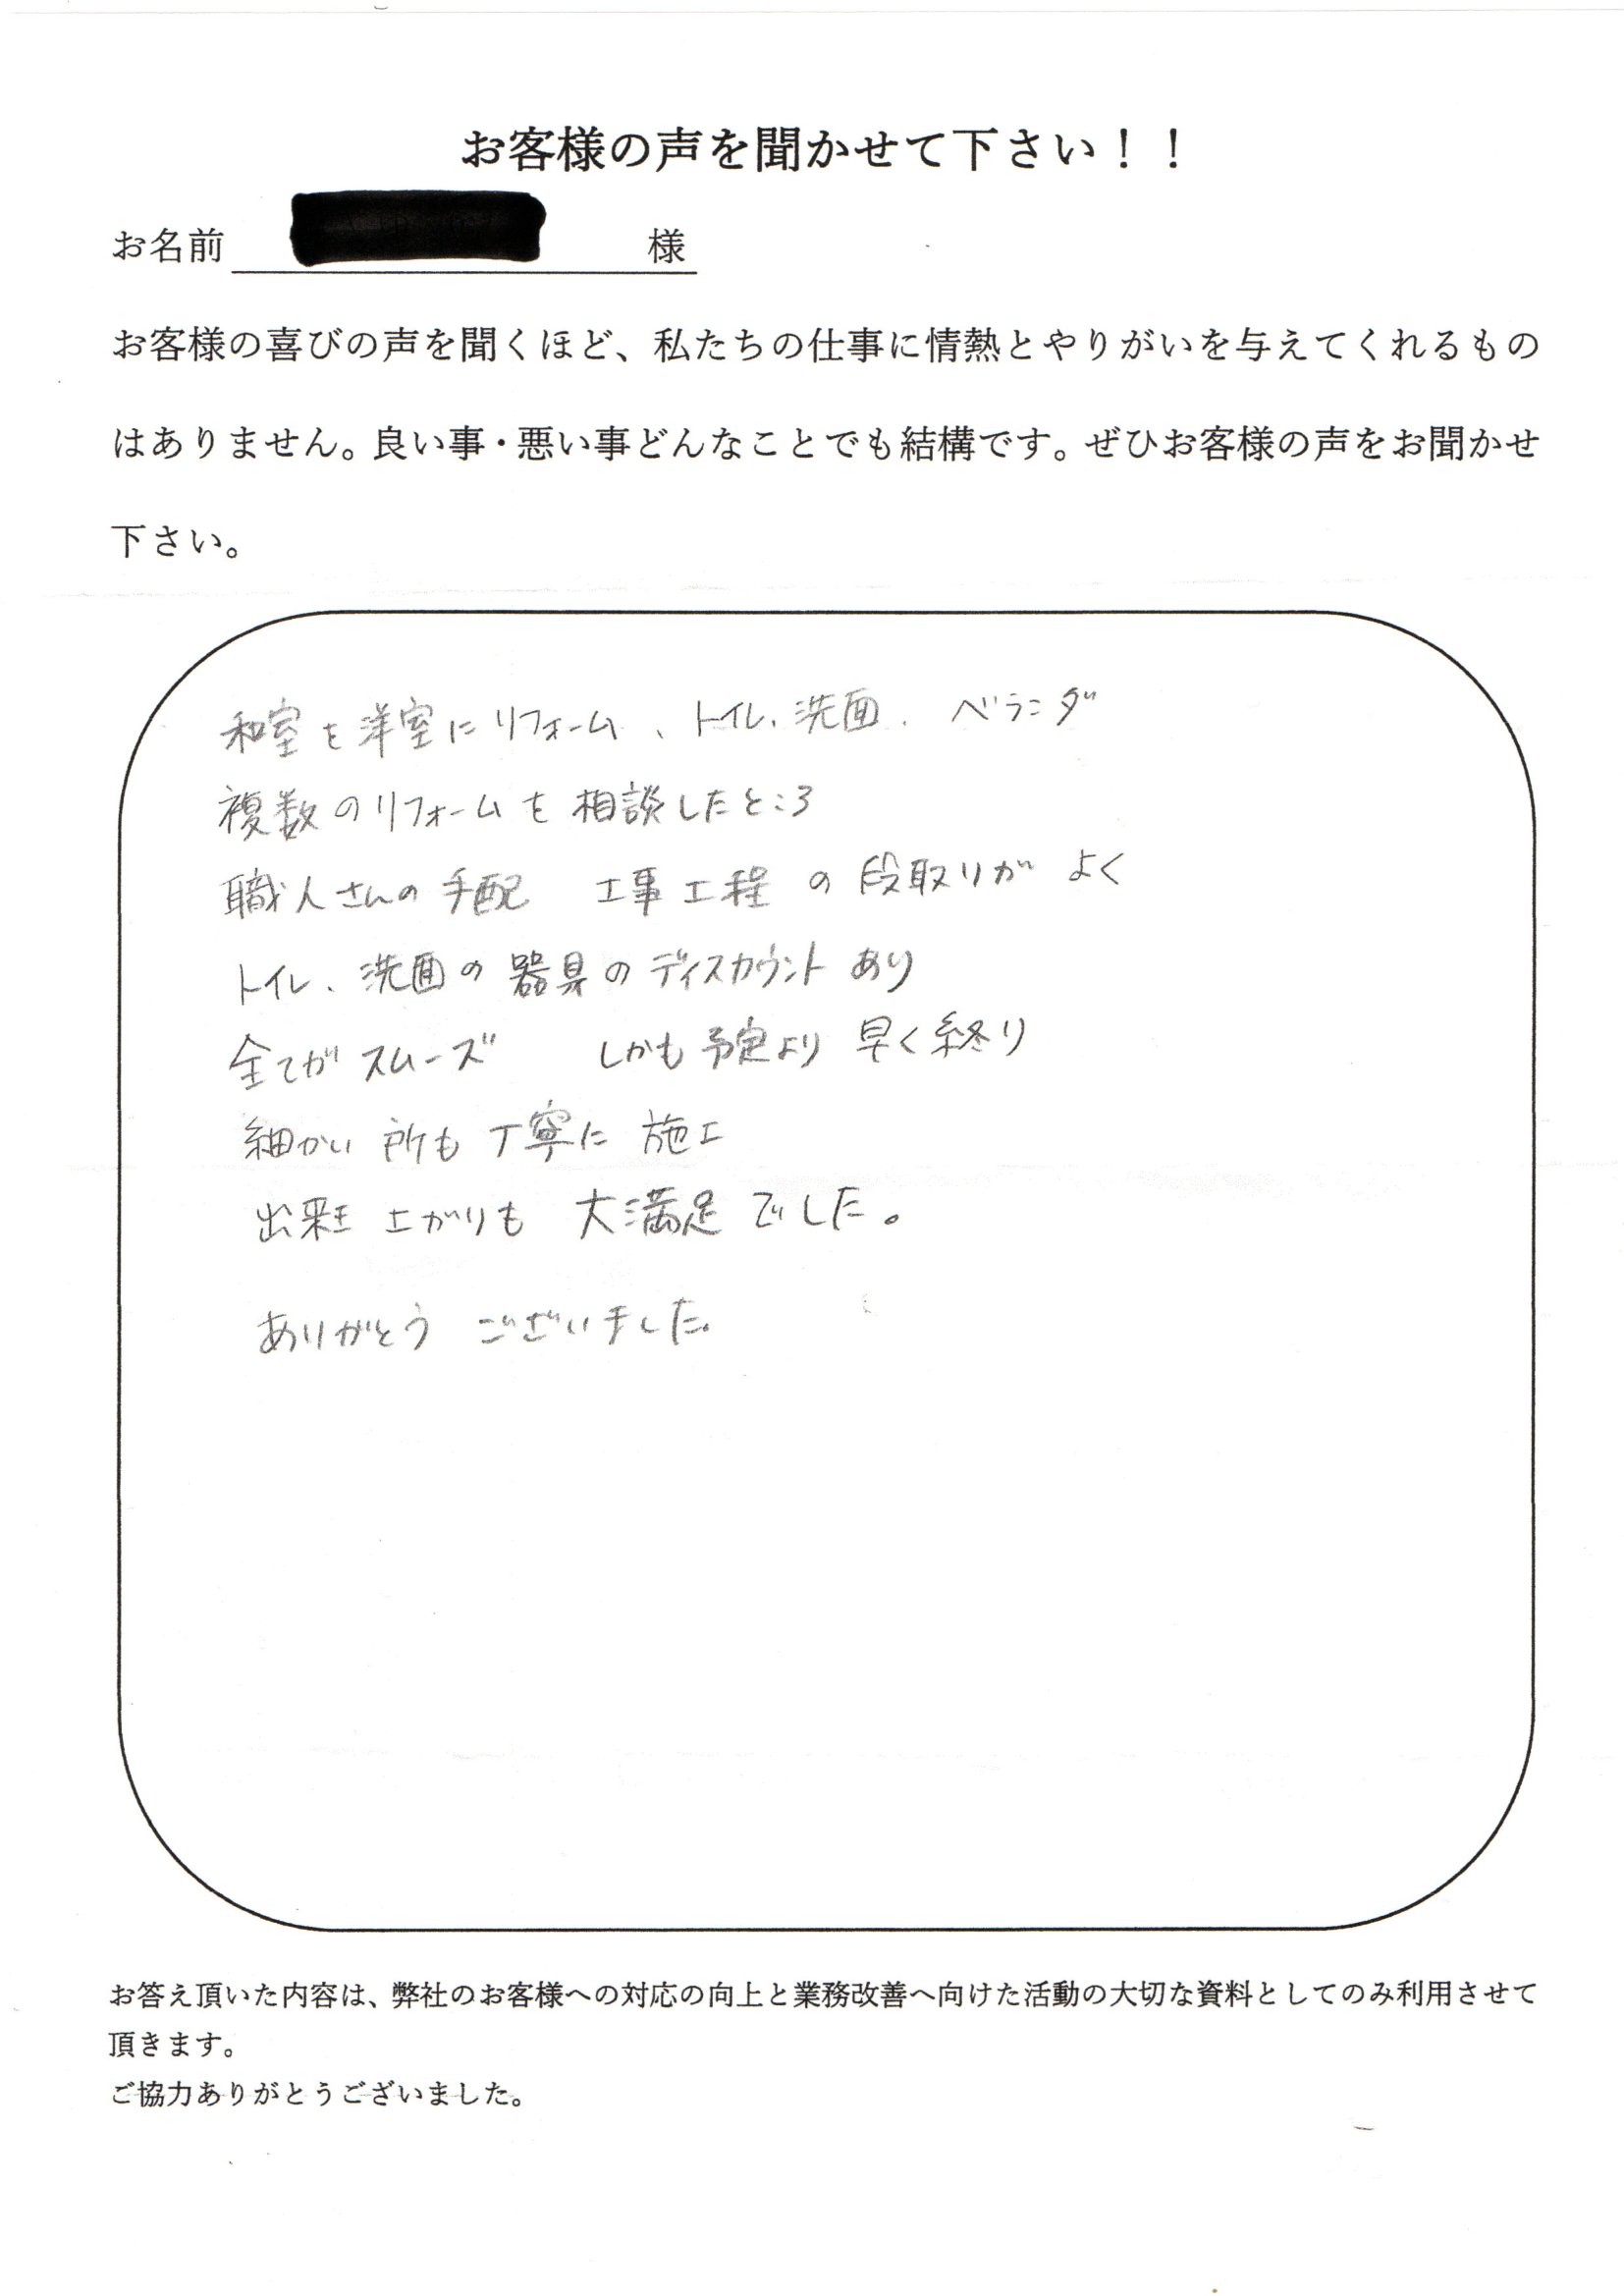 お客様の声を聞かせて下さい！！
お名前 様
お客様の喜びの声を聞くほど、私たちの仕事に情熱とやりがいを与えてくれるもの
はありません。良い事・悪い事どんなことでも結構です。ぜひお客様の声をお聞かせ
下さい。
和室を洋室にリフォーム、トイレ、洗面、ベランダ
複数のリフォームを相談したところ
職人さんの手配 工事工程の段取りがよく
トイレ、洗面の器具のディスカウントあり
全てがスムーズ しかも予定より早く終り
細かい所も丁寧に施工
出来上がりも大満足でした。
ありがとうございました。
お答え頂いた内容は、弊社のお客様への対応の向上と業務改善へ向けた活動の大切な資料としてのみ利用させて
頂きます。
ご協力ありがとうございました。